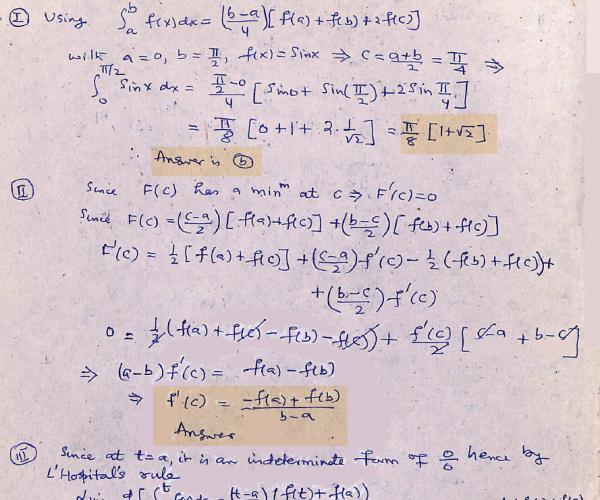 I Using ∫_a^b f(x)dx = ((b-a)/4)[f(a)+f(b)+2f(c)]
with a=0, b=π/2, f(x)=Sinx ⇒ c=(a+b)/2=π/4 ⇒
∫_0^(π/2) Sinx dx = ((π/2-0)/4)[Sin0+Sin(π/2)+2Sin π/4]
= π/8 [0+1+2·1/√2] = π/8 [1+√2]
∴ Answer is (b)
II Since F(c) has a min^m at c ⇒ F'(c)=0
Since F(c) = ((c-a)/2)[f(a)+f(c)]+((b-c)/2)[f(b)+f(c)]
F'(c) = 1/2[f(a)+f(c)]+((c-a)/2)f'(c)-1/2(f(b)+f(c))+
+((b-c)/2)f'(c)
0 = 1/2(f(a)+f(c)-f(b)-f(c))+ f'(c)/2 [c-a+b-c]
⇒ (a-b)f'(c) = f(a)-f(b)
⇒ f'(c) = (-f(a)+f(b))/(b-a)
Answer
III Since at t=a, it is an indeterminate form of 0/0 hence by
L'Hopital's rule
(t-a)(f(t)+f(a))